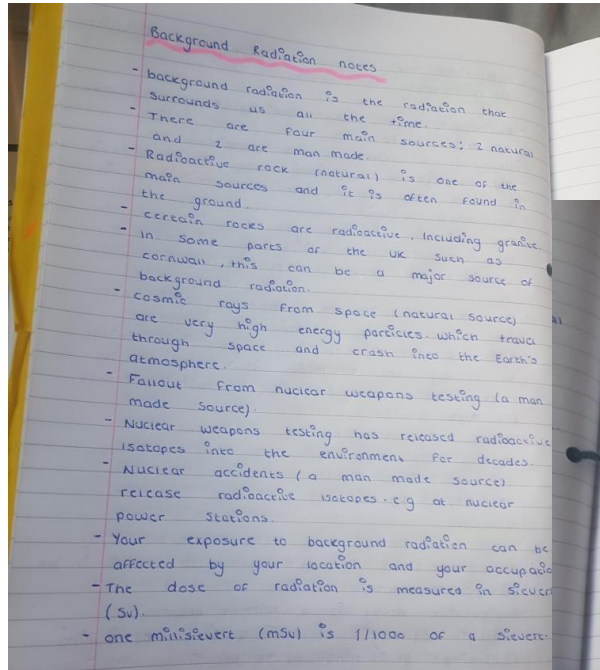 Background Radiation notes
- background radiation is the radiation that
surrounds us all the time.
- There are four main sources; 2 natural
and 2 are man made.
- Radioactive rock (natural) is one of the
main sources and it is often found in
the ground.
- certain rocks are radioactive, including granite.
- in some parts of the UK such as
cornwall, this can be a major source of
background radiation.
- cosmic rays from space (natural source)
are very high energy particles which travel
through space and crash into the Earth's
atmosphere.
- Fallout from nuclear weapons testing (a man
made source).
- Nuclear weapons testing has released radioactive
isotopes into the environment for decades.
- Nuclear accidents (a man made source)
release radioactive isotopes. e.g at nuclear
power stations.
- Your exposure to background radiation can be
affected by your location and your occupatio
- The dose of radiation is measured in siever
(Sv).
- one millisievert (mSv) is 1/1000 of a sievert.